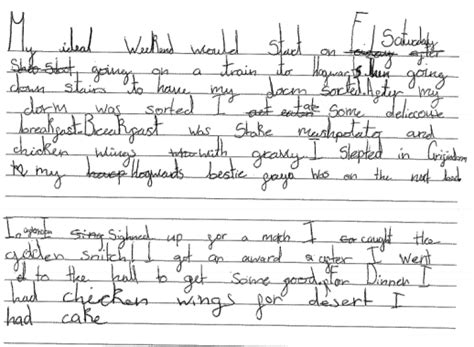 My ideal Weekend would start on Saturday
going on a train to Hogwarts. then going
down stairs to have my dorm sorted. After my
dorm was sorted I ate some delicouse
breakfast. Breakfast was Stake mashpotato and
chicken wings with gravy. I Slepted in Grifindom
my Hogwards bestie was on the next bed
In Sighned up for a math I caught the
golden snitch! I got an award after I went
to the hall to get some good. For Dinner I
had chicken wings for desert I
had cake